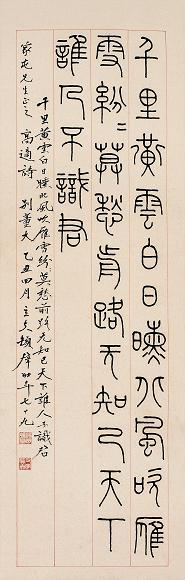 千里黃雲白日曛北風吹雁
雪紛〻莫愁前路无知己天下
誰人不識君
千里黃雲白日曛北風吹雁雪紛〻莫愁前路无知己天下誰人不識君
先生正之 高適詩 別董大 乙丑四月 時年七十九